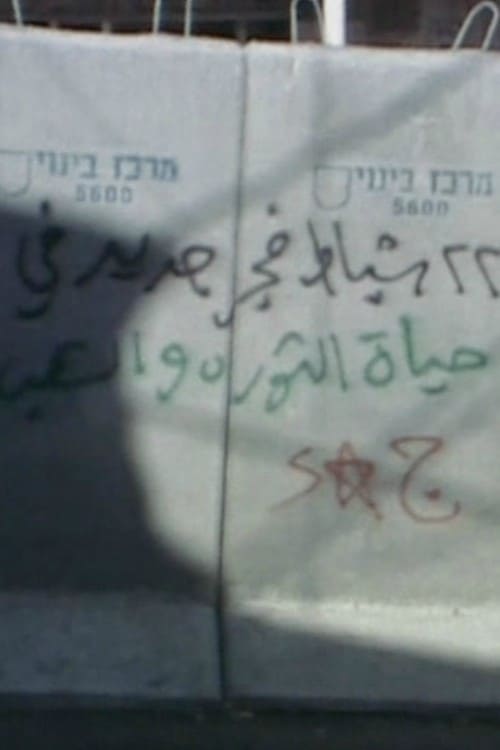 מרכז בינוי
5600
מרכז בינוי
5600
٢٢ شباط فجر جديد في
حياة الثوره والشعب
ج د